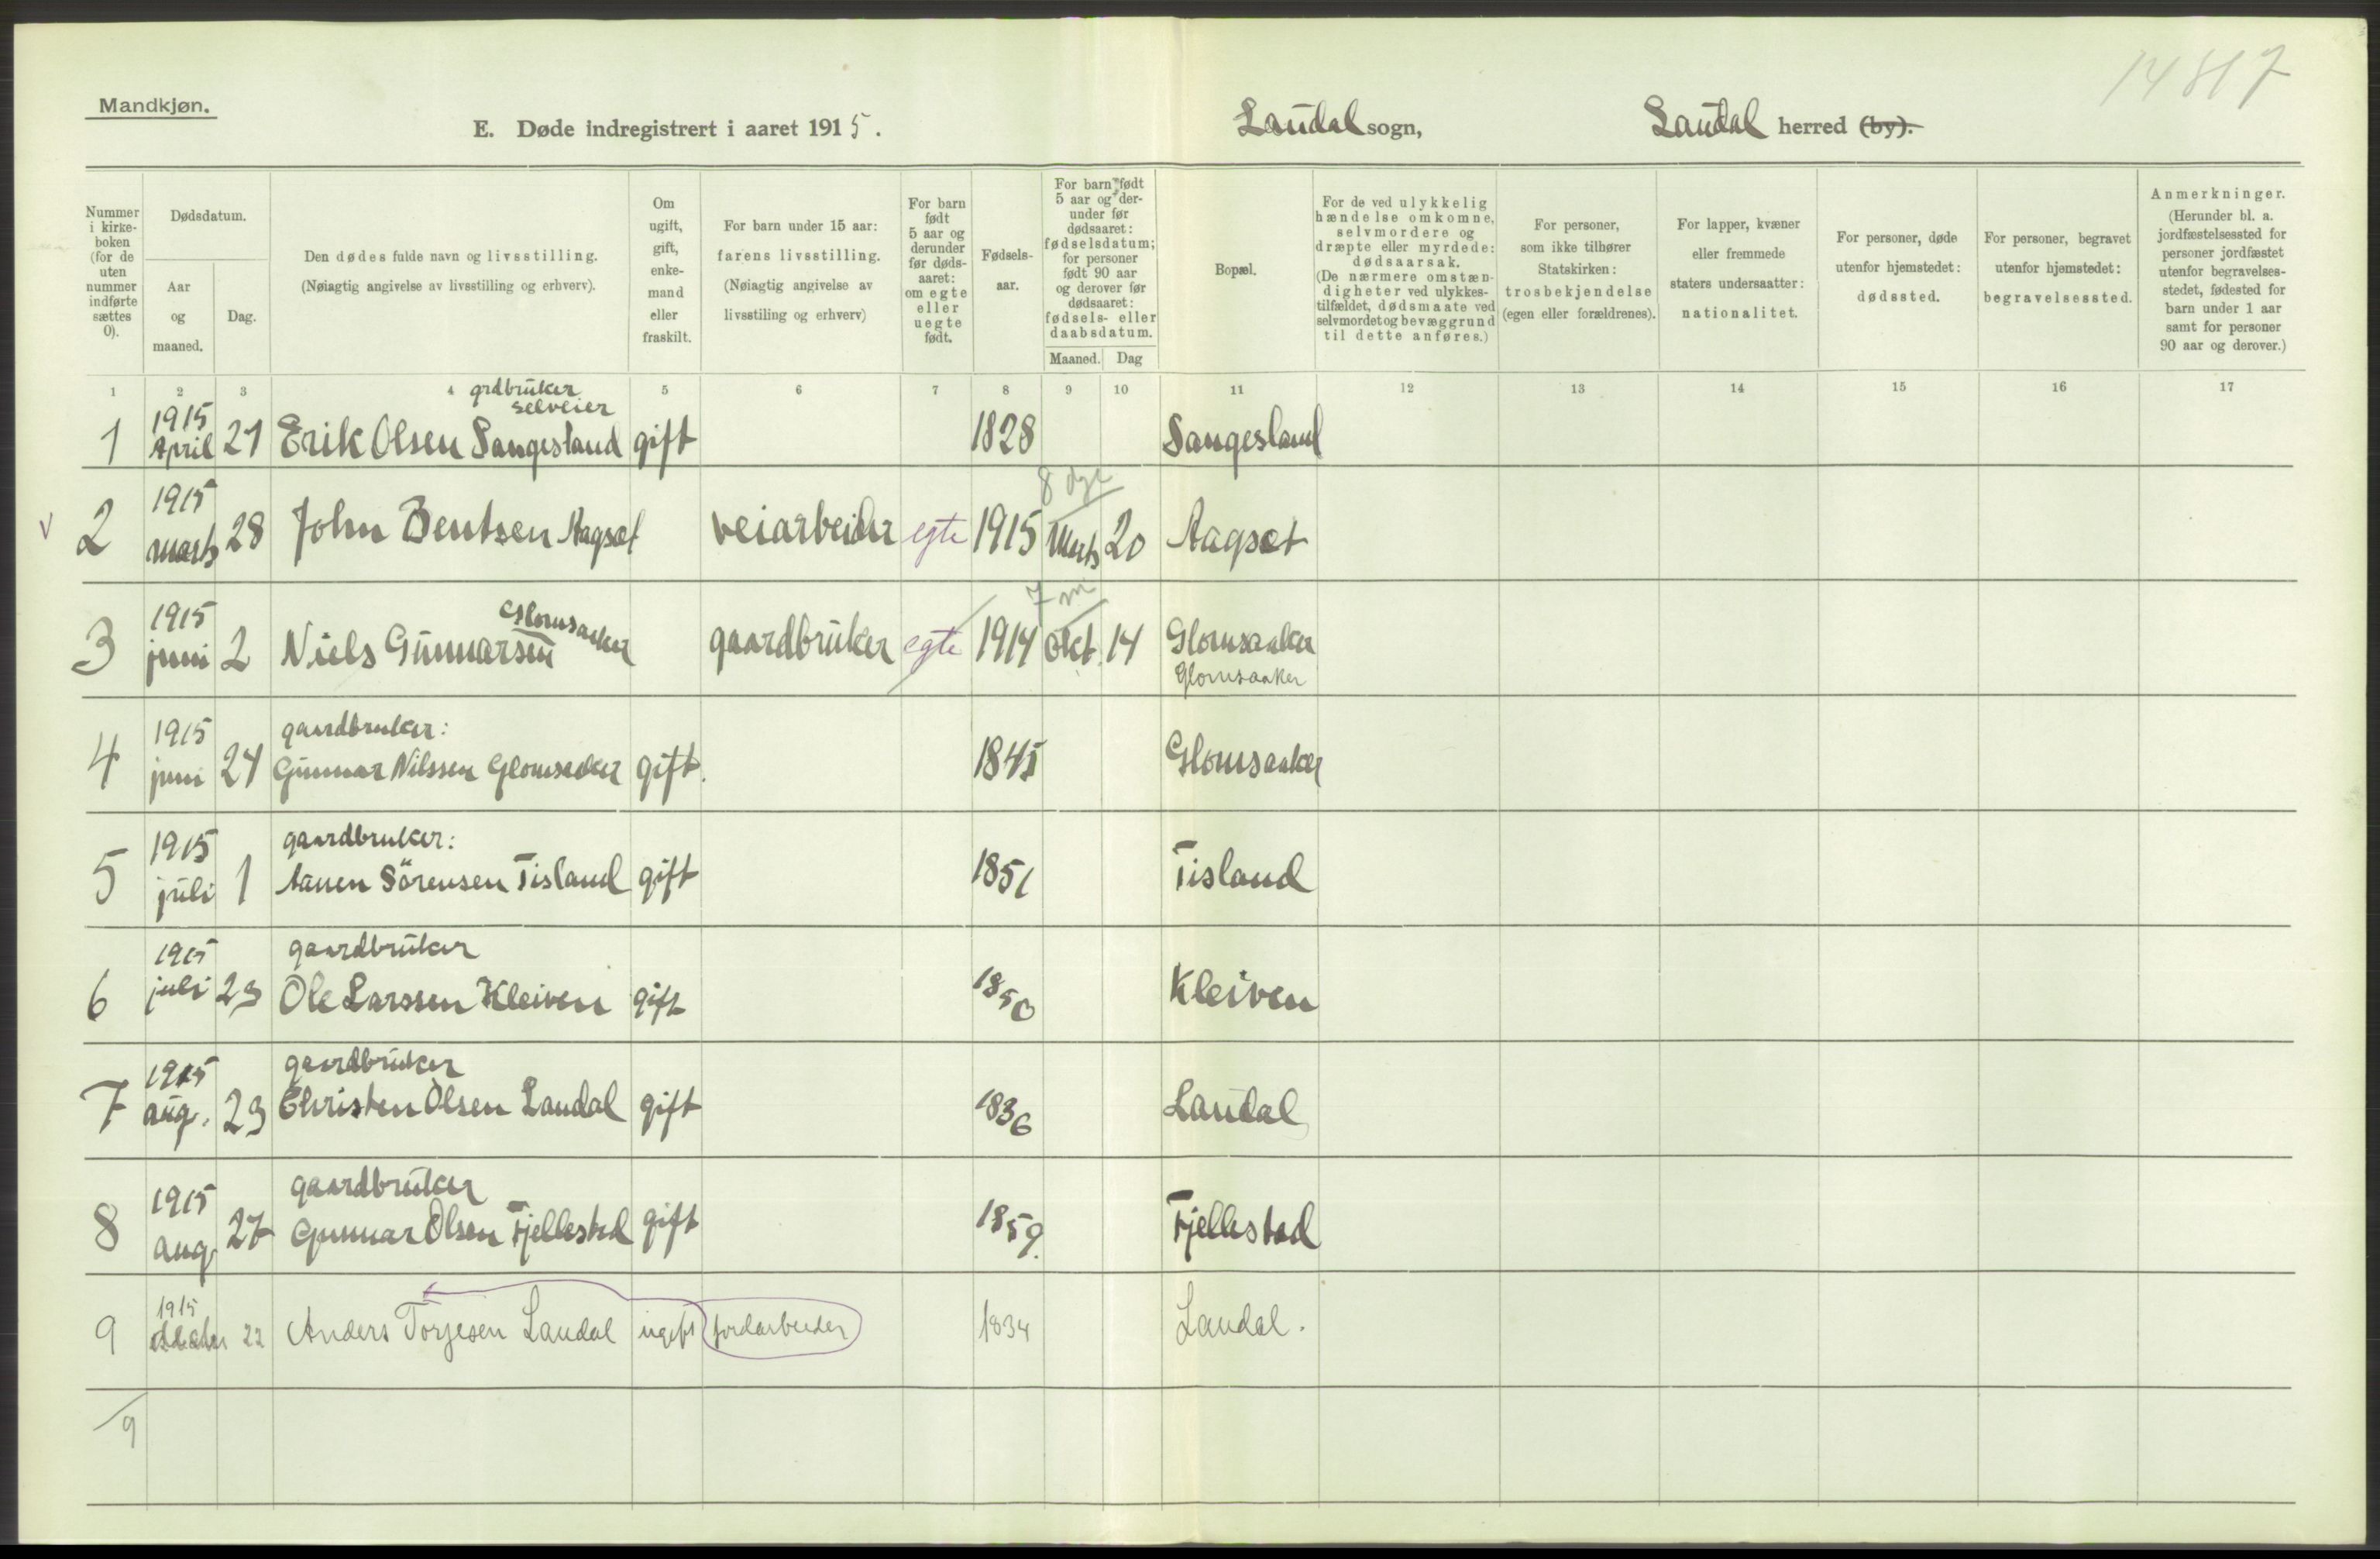 Mandkjøn.
E. Døde indregistrert i aaret 1915.
Laudal sogn,
Laudal herred (by).
14817
Nummer i kirkeboken (for de uten nummer indførte sættes 0).
Dødsdatum.
Aar og maaned.
Dag.
Den dødes fulde navn og livsstilling.
(Nøiagtig angivelse av livsstilling og erhverv).
Om ugift, gift, enkemand eller fraskilt.
For barn under 15 aar: farens livsstilling. (Nøiagtig angivelse av livsstiling og erhverv)
For barn født 5 aar og derunder før dødsaaret: om egte eller uegte født.
Fødselsaar.
For barn født 5 aar og derunder før dødsaaret: fødselsdatum; for personer født 90 aar og derover før dødsaaret: fødsels- eller daabsdatum.
Maaned. Dag
Bopæl.
For de ved ulykkelig hændelse omkomne, selvmordere og dræpte eller myrdede: dødsaarsak. (De nærmere omstændigheter ved ulykkestilfældet, dødsmaate ved selvmordet og bevæggrund til dette anføres.)
For personer, som ikke tilhører Statskirken: trosbekjendelse (egen eller forældrenes).
For lapper, kvæner eller fremmede staters undersaatter: nationalitet.
For personer, døde utenfor hjemstedet: dødssted.
For personer, begravet utenfor hjemstedet: begravelsessted.
Anmerkninger. (Herunder bl. a. jordfæstelsessted for personer jordfæstet utenfor begravelsesstedet, fødested for barn under 1 aar samt for personer 90 aar og derover.)
1 2 3 4 5 6 7 8 9 10 11 12 13 14 15 16 17
grdbruker
selveier
1 1915 April 21 Erik Olsen Sangesland gift 1828 Sangesland
8 dge
2 1915 marts 28 John Bentsen Aagset veiarbeider egte 1915 Marts 20 Aagset
7 m
Glomsaaker
3 1915 juni 2 Niels Gunnarsen gaardbruker egte 1914 Okt. 14 Glomsaaker
Glomsaaker
gaardbruker:
4 1915 juni 24 Gunnar Nilssen Glomsaaker gift. 1845 Glomsaaker
gaardbruker:
5 1915 juli 1 Aanen Sörensen Tisland gift 1851 Tisland
gaardbruker
6 1915 juli 23 Ole Larssen Kleiven gift 1850 Kleiven
gaardbruker
7 1915 aug. 23 Christen Olsen Laudal gift 1836 Laudal
gaardbruker
8 1915 aug. 27 Gunnar Olsen Fjellestad gift 1859. Fjellestad
9 1915 22 Anders Torjesen Laudal ugift jordarbeider 1834 Laudal.
9